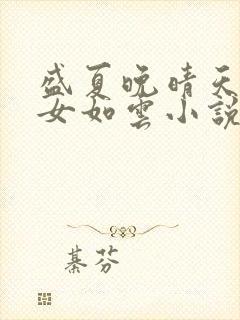 盛夏晚晴天
女如雲小說
綦芬